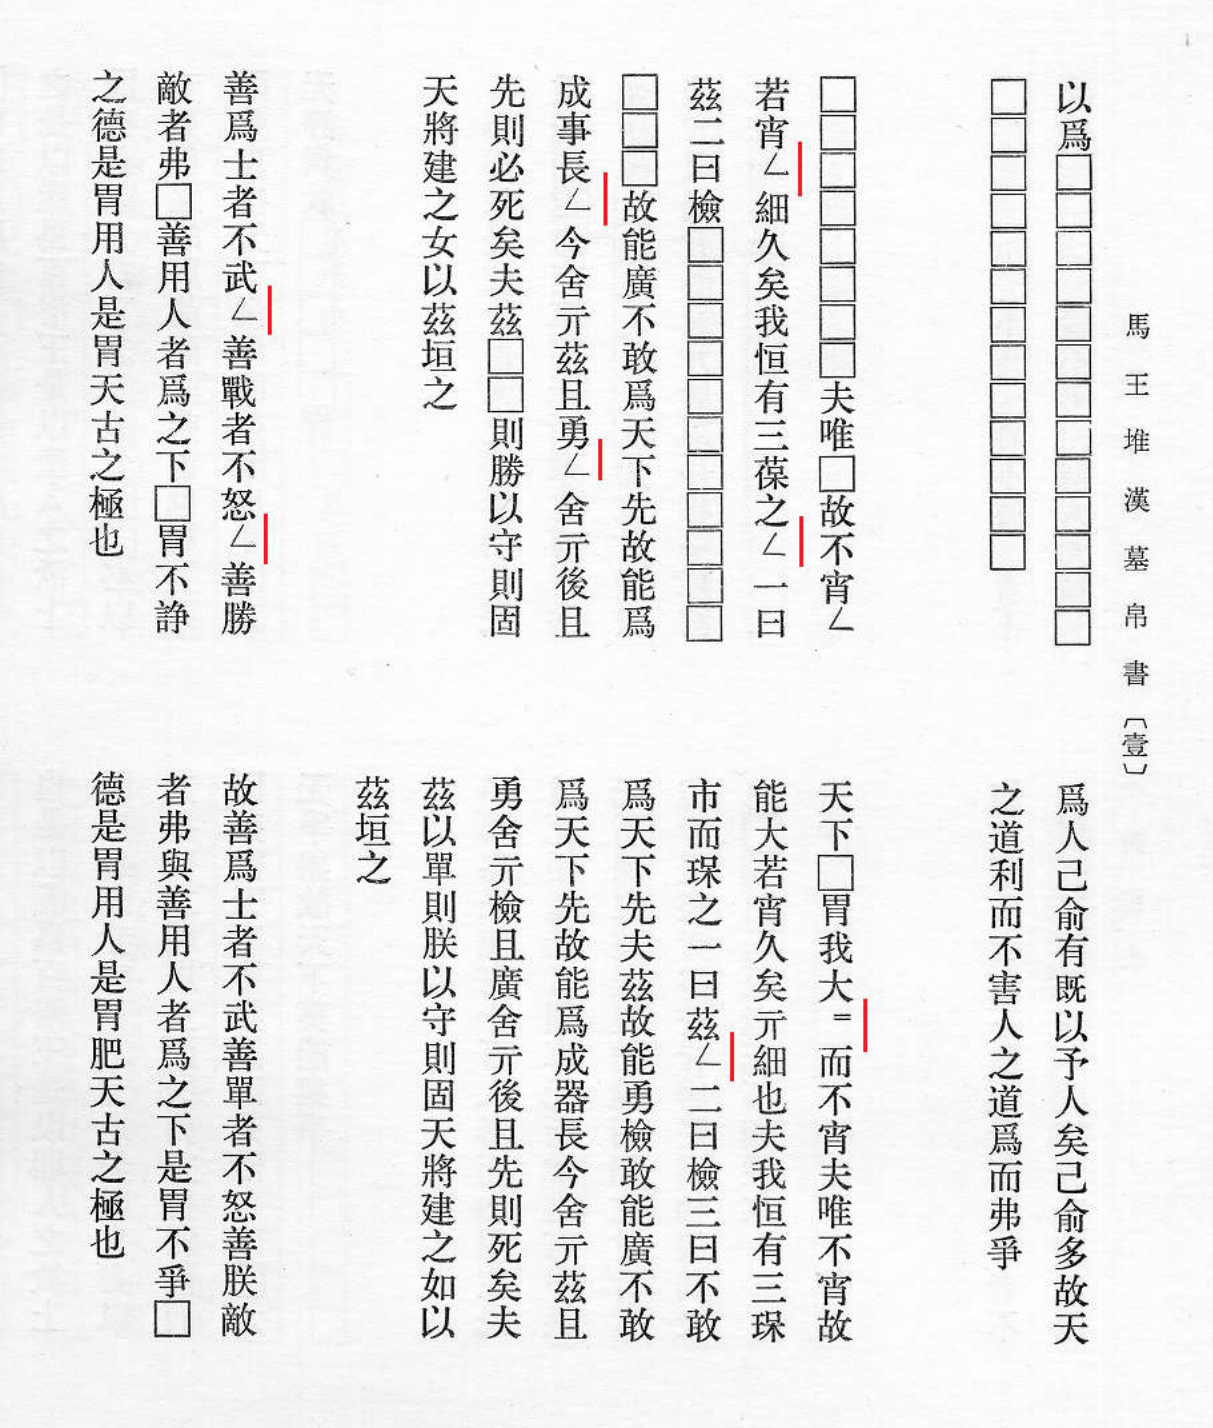 馬王堆漢墓帛書〔壹〕
以爲□□□□□□□□□□□□□
□□□□□□□□□□□□□
□□□□□□□□夫唯□故不宵∠
若宵∠細久矣我恒有三葆之∠一曰
茲二曰檢□□□□□□□□□□□
□□□故能廣不敢爲天下先故能爲
成事長∠今舍亓茲且勇∠舍亓後且
先則必死矣夫茲□□則勝以守則固
天將建之女以茲垣之
善爲士者不武∠善戰者不怒∠善勝
敵者弗□善用人者爲之下□胃不諍
之德是胃用人是胃天古之極也
爲人己俞有既以予人矣己俞多故天
之道利而不害人之道爲而弗爭
天下□胃我大=而不宵夫唯不宵故
能大若宵久矣亓細也夫我恒有三琛
市而琛之一曰茲∠二曰檢三曰不敢
爲天下先夫茲故能勇檢敢能廣不敢
爲天下先故能爲成器長今舍亓茲且
勇舍亓檢且廣舍亓後且先則死矣夫
茲以單則朕以守則固天將建之如以
茲垣之
故善爲士者不武善單者不怒善朕敵
者弗與善用人者爲之下是胃不爭□
德是胃用人是胃肥天古之極也